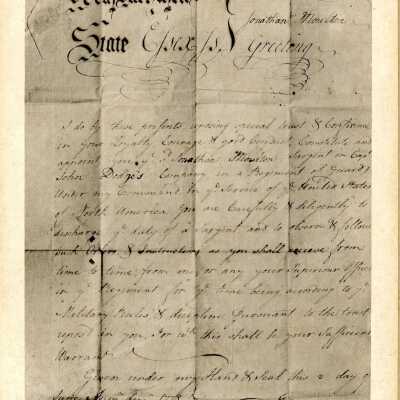 Jonathan Moulton
State Essex ss. Greeting
I do by these presents reposing special trust & Confidence
in your Loyalty Courage & good Conduct, Constitute and
appoint you yᵉ sᵈ Jonathan Moulton Sargent in Capᵗ
John Dodge's Company in a Regiment of Guards
Under my Command in yᵉ Service of yᵉ United States
of North America You are Carefully & diligently to
discharge yᵉ duty of a Sargent and to observe & follow
such Orders & Instructions as you shall receive from
time to time, from me, or any your Superiour Officer
in yᵉ Regiment for yᵉ time being according to yᵉ
Military Rules & discipline Pursuant to the trust
repos'd in you. For wᶜʰ this shall be your Sufficient
Warrant
Given under my Hand & Seal this 2 day of